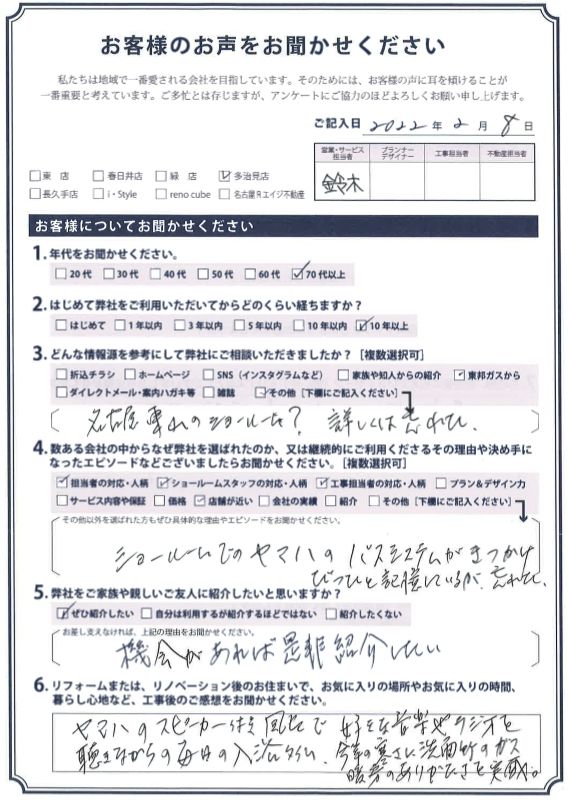 お客様のお声をお聞かせください
私たちは地域で一番愛される会社を目指しています。そのためには、お客様の声に耳を傾けることが
一番重要と考えています。ご多忙とは存じますが、アンケートにご協力のほどよろしくお願い申し上げます。
ご記入日 2022年 2月 8日
営業・サービス担当者 プランナーデザイナー 工事担当者 不動産担当者
鈴木
東 店 春日井店 緑 店 多治見店
長久手店 i・Style reno cube 名古屋Rエイジ不動産
お客様についてお聞かせください
1. 年代をお聞かせください。
20代 30代 40代 50代 60代 70代以上
2. はじめて弊社をご利用いただいてからどのくらい経ちますか?
はじめて 1年以内 3年以内 5年以内 10年以内 10年以上
3. どんな情報源を参考にして弊社にご相談いただきましたか?[複数選択可]
折込チラシ ホームページ SNS(インスタグラムなど) 家族や知人からの紹介 東邦ガスから
ダイレクトメール・案内ハガキ等 雑誌 その他[下欄にご記入ください]
名古屋 のショールーム? 詳しくは忘れた。
4. 数ある会社の中からなぜ弊社を選ばれたのか、又は継続的にご利用くださるその理由や決め手に
なったエピソードなどございましたらお聞かせください。[複数選択可]
担当者の対応・人柄 ショールームスタッフの対応・人柄 工事担当者の対応・人柄 プラン&デザイン力
サービス内容や保証 価格 店舗が近い 会社の実績 紹介 その他[下欄にご記入ください]
その他以外を選ばれた方もぜひ具体的な理由やエピソードをお聞かせください。
ショールームでのヤマハのバスシステムがきっかけ
と記憶しているが、忘れた。
5. 弊社をご家族や親しいご友人に紹介したいと思いますか?
ぜひ紹介したい 自分は利用するが紹介するほどではない 紹介したくない
お差し支えなければ、上記の理由をお聞かせください。
機会があれば是非紹介したい
6. リフォームまたは、リノベーション後のお住まいで、お気に入りの場所やお気に入りの時間、
暮らし心地など、工事後のご感想をお聞かせください。
ヤマハのスピーカー付き風呂で 好きな音楽やラジオを
聴きながらの毎日の入浴タイム。今年の寒さに洗面所のガス
暖房のありがたさを実感。